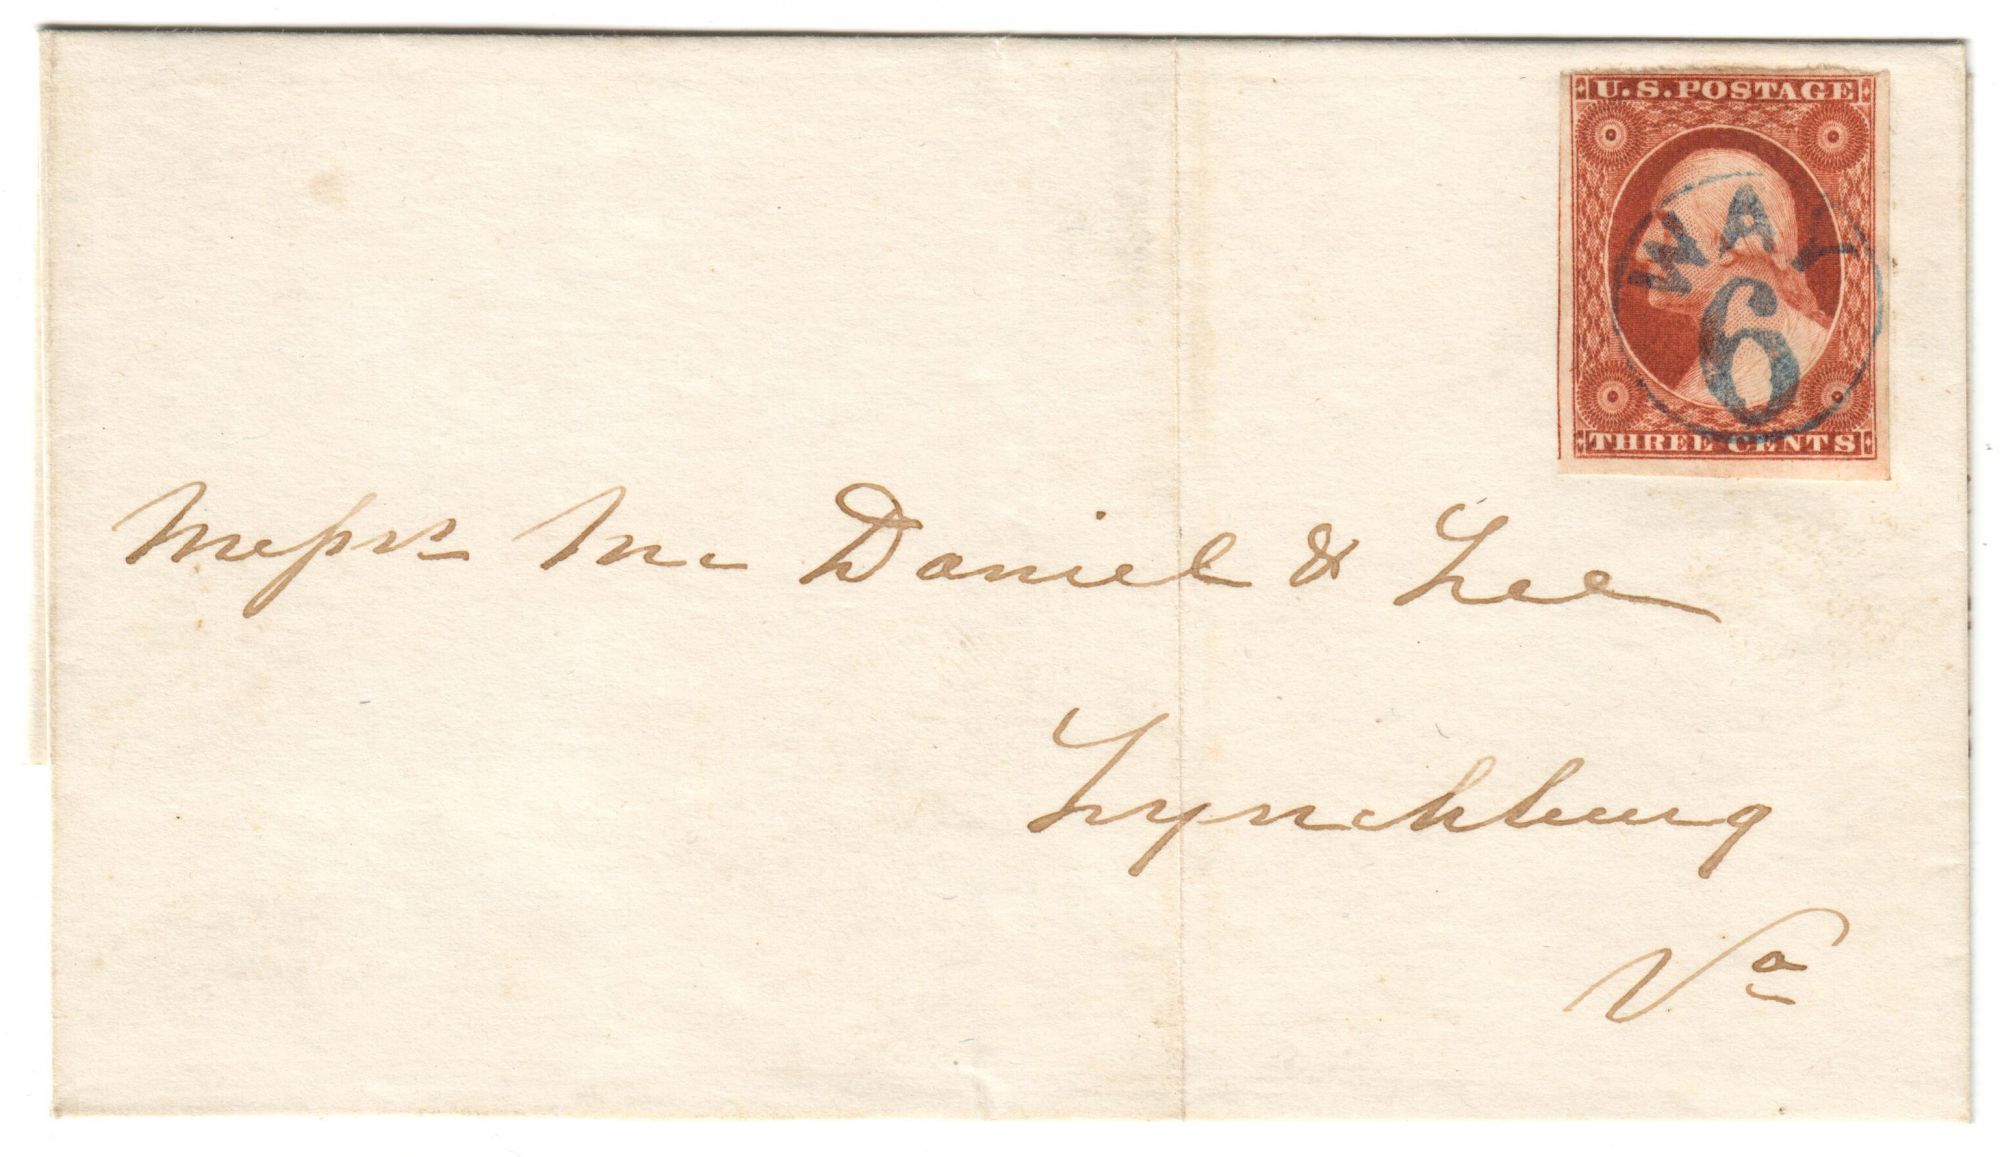 U.S. POSTAGE
WAY
6
THREE CENTS
Messrs Mc Daniel & Lee
Lynchburg
Va